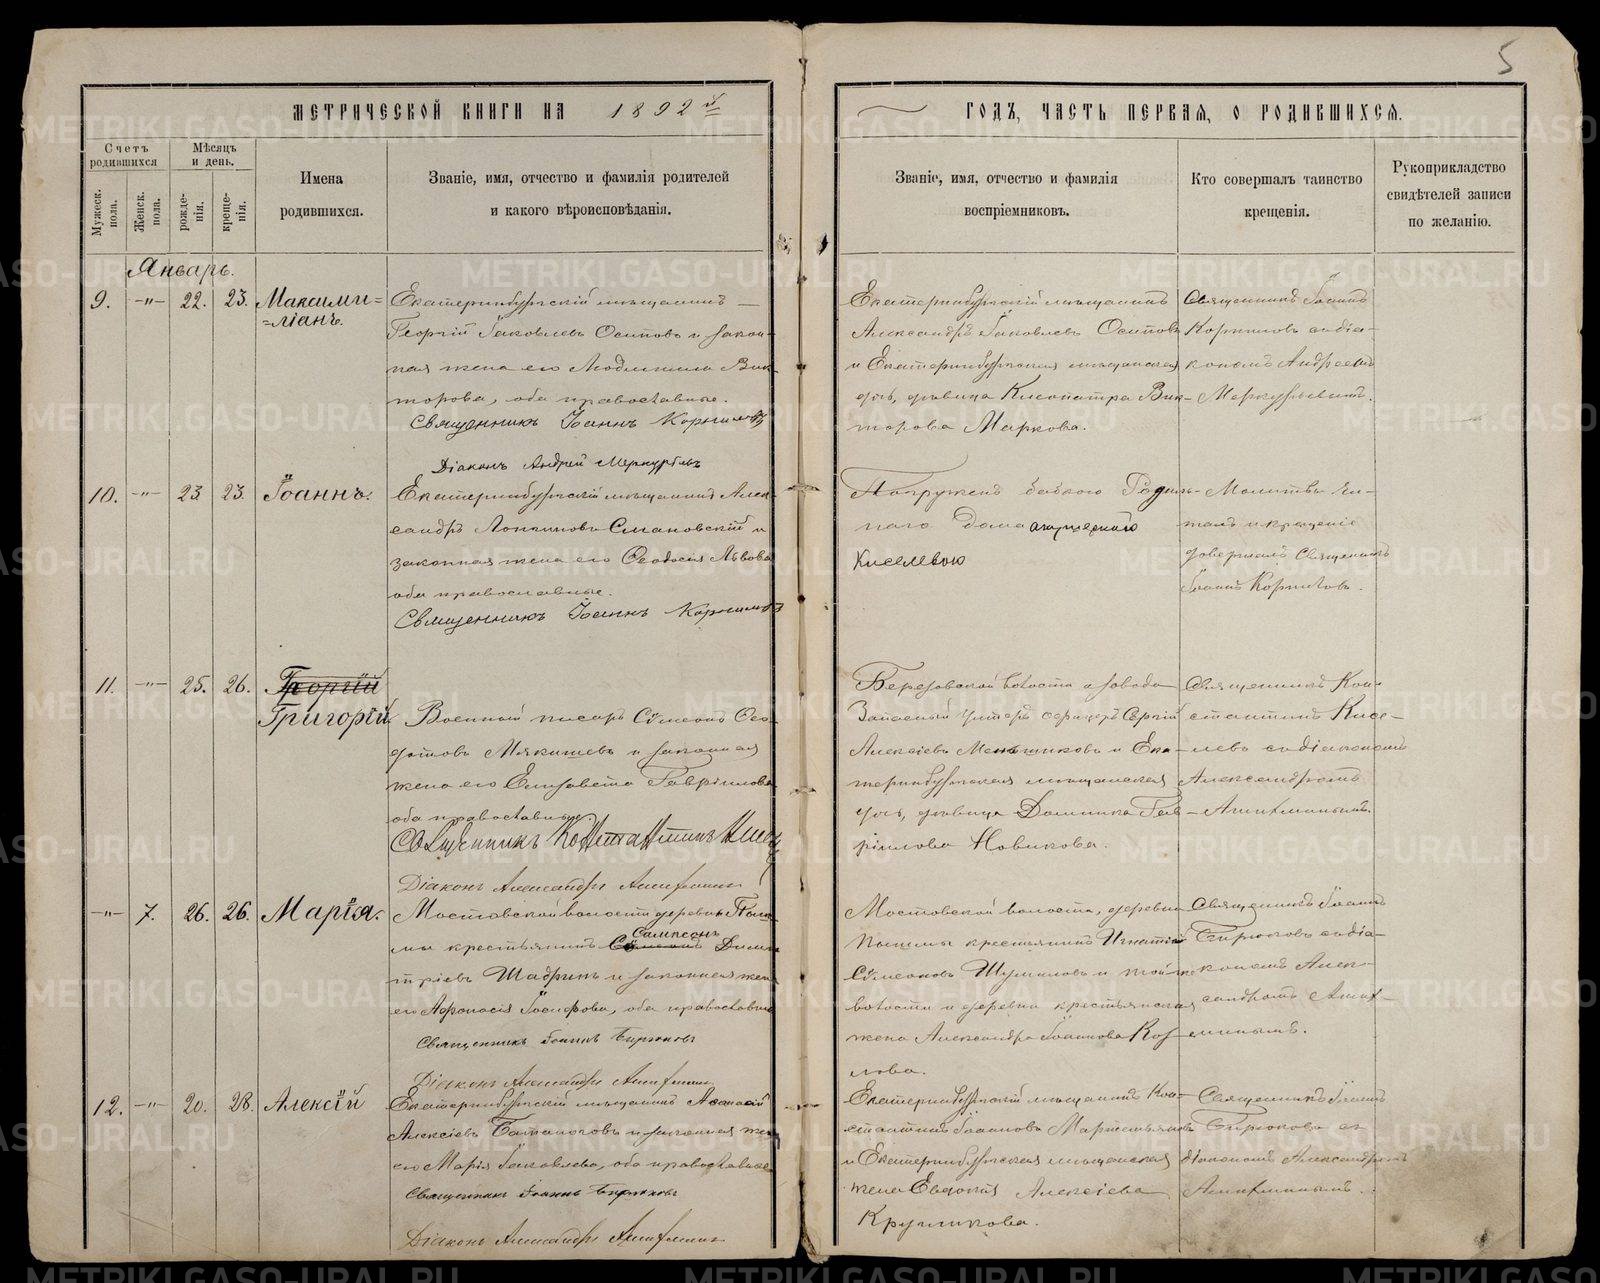 5
МЕТРИЧЕСКОЙ КНИГИ НА 1892 й
ГОДЪ, ЧАСТЬ ПЕРВАЯ, О РОДИВШИХСЯ.
Счетъ родившихся
Мѣсяцъ и день.
Мужеск. пола.
Женск. пола.
рожде-нія.
креще-нія.
Имена
родившихся.
Званіе, имя, отчество и фамилія родителей
и какого вѣроисповѣданія.
Званіе, имя, отчество и фамилія
воспріемниковъ.
Кто совершалъ таинство
крещенія.
Рукоприкладство
свидѣтелей записи
по желанію.
Январь.
9. -"- 22. 23. Максими=
=ліанъ.
Екатеринбургскій мѣщанинъ
Георгій Іаковлевъ Осиповъ и закон-
ная жена его Людмилла Вик-
торова, оба православные.
Священникъ Іоаннъ Корниловъ
Діаконъ Андрей Меркурьевъ
Екатеринбургскій мѣщанинъ
Александръ Іаковлевъ Осиповъ
и Екатеринбургская мѣщанская
дочь, дѣвица Клеопатра Вик-
торова Маркова.
Священникъ Іоаннъ
Корниловъ съ діа-
кономъ Андреемъ
Меркурьевымъ.
10. -"- 23 23. Іоаннъ.
Екатеринбургскій мѣщанинъ Алек-
сандръ Смановскій и
законная жена его Ѳеодосія Львова
оба православные.
Священникъ Іоаннъ Корниловъ
Погруженъ бабкою Родиль-
наго Дома
Киселевою
Молитвы чи-
талъ и крещеніе
довершалъ Священникъ
Іоаннъ Корниловъ.
11. -"- 25. 26. Георгій
Григорій
Военный писарь Сѵмеонъ Ѳео-
дотовъ Мякишевъ и законная
жена его Елисавета Гавріилова
оба православные
Священникъ Константинъ
Діаконъ Александръ
Березовской волости и завода
Запасный унтеръ офицеръ Сергій
Алексіевъ Меньшиковъ и Ека-
теринбургская мѣщанская
дочь, дѣвица Домника Гав-
ріилова Новикова.
Священникъ Кон-
стантинъ Кисе-
левъ съ діакономъ
Александромъ
-"- 7. 26. 26. Марія.
Мостовской волости деревни
мы крестьянинъ Сампсонъ Дими-
тріевъ Шадринъ и законная жена
его Аѳанасія Іосифова, оба православные
Священникъ Іоаннъ Бирюковъ
Діаконъ Александръ
Мостовской волости, деревни
крестьянинъ Игнатій
Сѵмеоновъ Шумиловъ и той же
волости и деревни крестьянская
жена Александра Іоаннова Коз-
лова.
Священникъ Іоаннъ
Бирюковъ съ діа-
кономъ Алек-
сандромъ
12. -"- 20. 28. Алексій
Екатеринбургскій мѣщанинъ Аѳанасій
Алексіевъ и законная жена
его Марія Іаковлева, оба православные
Священникъ Іоаннъ Бирюковъ
Діаконъ Александръ
Екатеринбургскій мѣщанинъ Кон-
стантинъ Іоанновъ Мартемьяновъ
и Екатеринбургская мѣщанская
жена Евдокія Алексіева
Кругликова.
Священникъ Іоаннъ
Бирюковъ съ
діакономъ Александромъ
METRIKI.GASO-URAL.RU